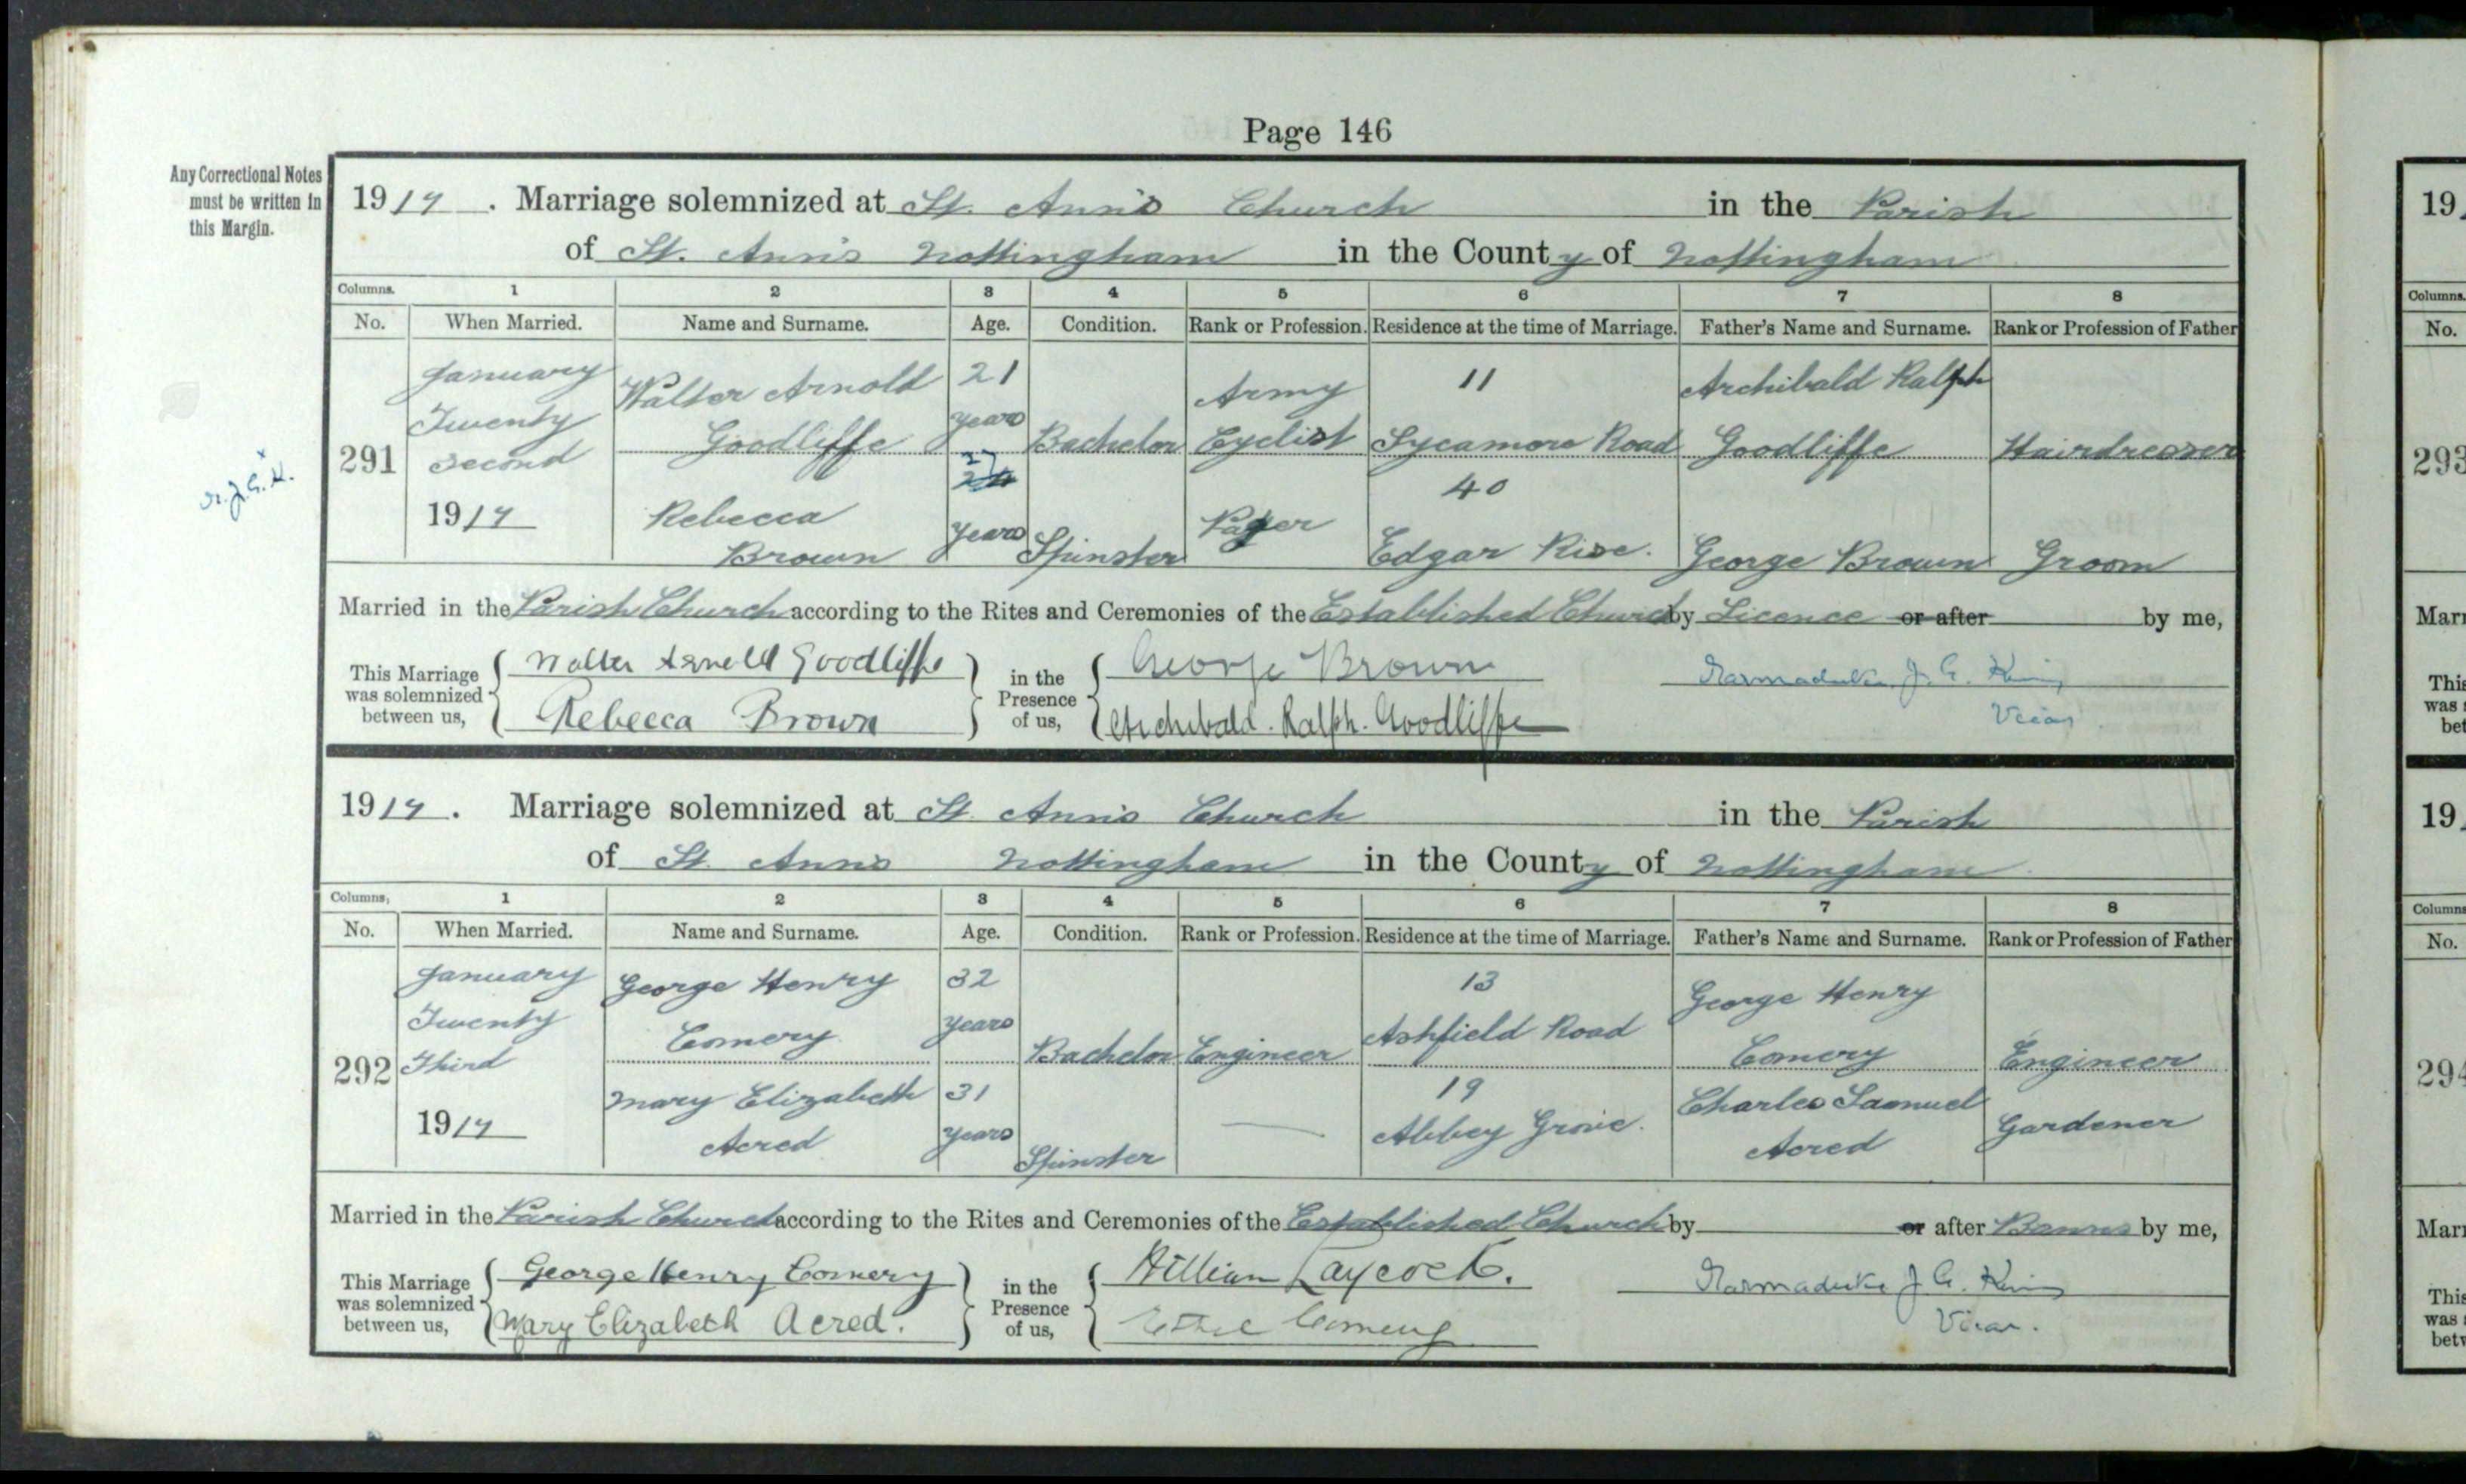 Page 146
Any Correctional Notes
must be written in
this Margin.
1917. Marriage solemnized at St. Ann's Church in the Parish
of St. Ann's Nottingham in the County of Nottingham
Columns. 1 2 3 4 5 6 7 8
No. When Married. Name and Surname. Age. Condition. Rank or Profession. Residence at the time of Marriage. Father's Name and Surname. Rank or Profession of Father
January Walter Arnold 21 Army 11 Archibald Ralph
Twenty Goodliffe years Bachelor Cyclist Sycamore Road Goodliffe Hairdresser
291 second 27 40
1917 Rebecca years Spinster Edgar Rise. George Brown Groom
Brown
M.J.G.K.
Married in the Parish Church according to the Rites and Ceremonies of the Established Church by Licence or after by me,
This Marriage was solemnized between us, Walter Arnold Goodliffe in the Presence of us, George Brown Marmaduke J. G. King
Rebecca Brown Archibald. Ralph. Goodliffe Vicar
1917. Marriage solemnized at St. Ann's Church in the Parish
of St. Ann's Nottingham in the County of Nottingham
Columns, 1 2 3 4 5 6 7 8
No. When Married. Name and Surname. Age. Condition. Rank or Profession. Residence at the time of Marriage. Father's Name and Surname. Rank or Profession of Father
January George Henry 32 13 George Henry
Twenty Comery years Bachelor Engineer Ashfield Road Comery Engineer
292 Third Mary Elizabeth 31 19 Charles Samuel Gardener
1917 Acred years Spinster — Abbey Grove. Acred
Married in the Parish Church according to the Rites and Ceremonies of the Established Church by or after Banns by me,
This Marriage was solemnized between us, George Henry Comery in the Presence of us, William Laycock. Marmaduke J. G. King
Mary Elizabeth Acred. Comery Vicar.
19
Columns.
No.
293
Marr
This
was
bet
19
Columns
No.
294
Marr
This
was
betw